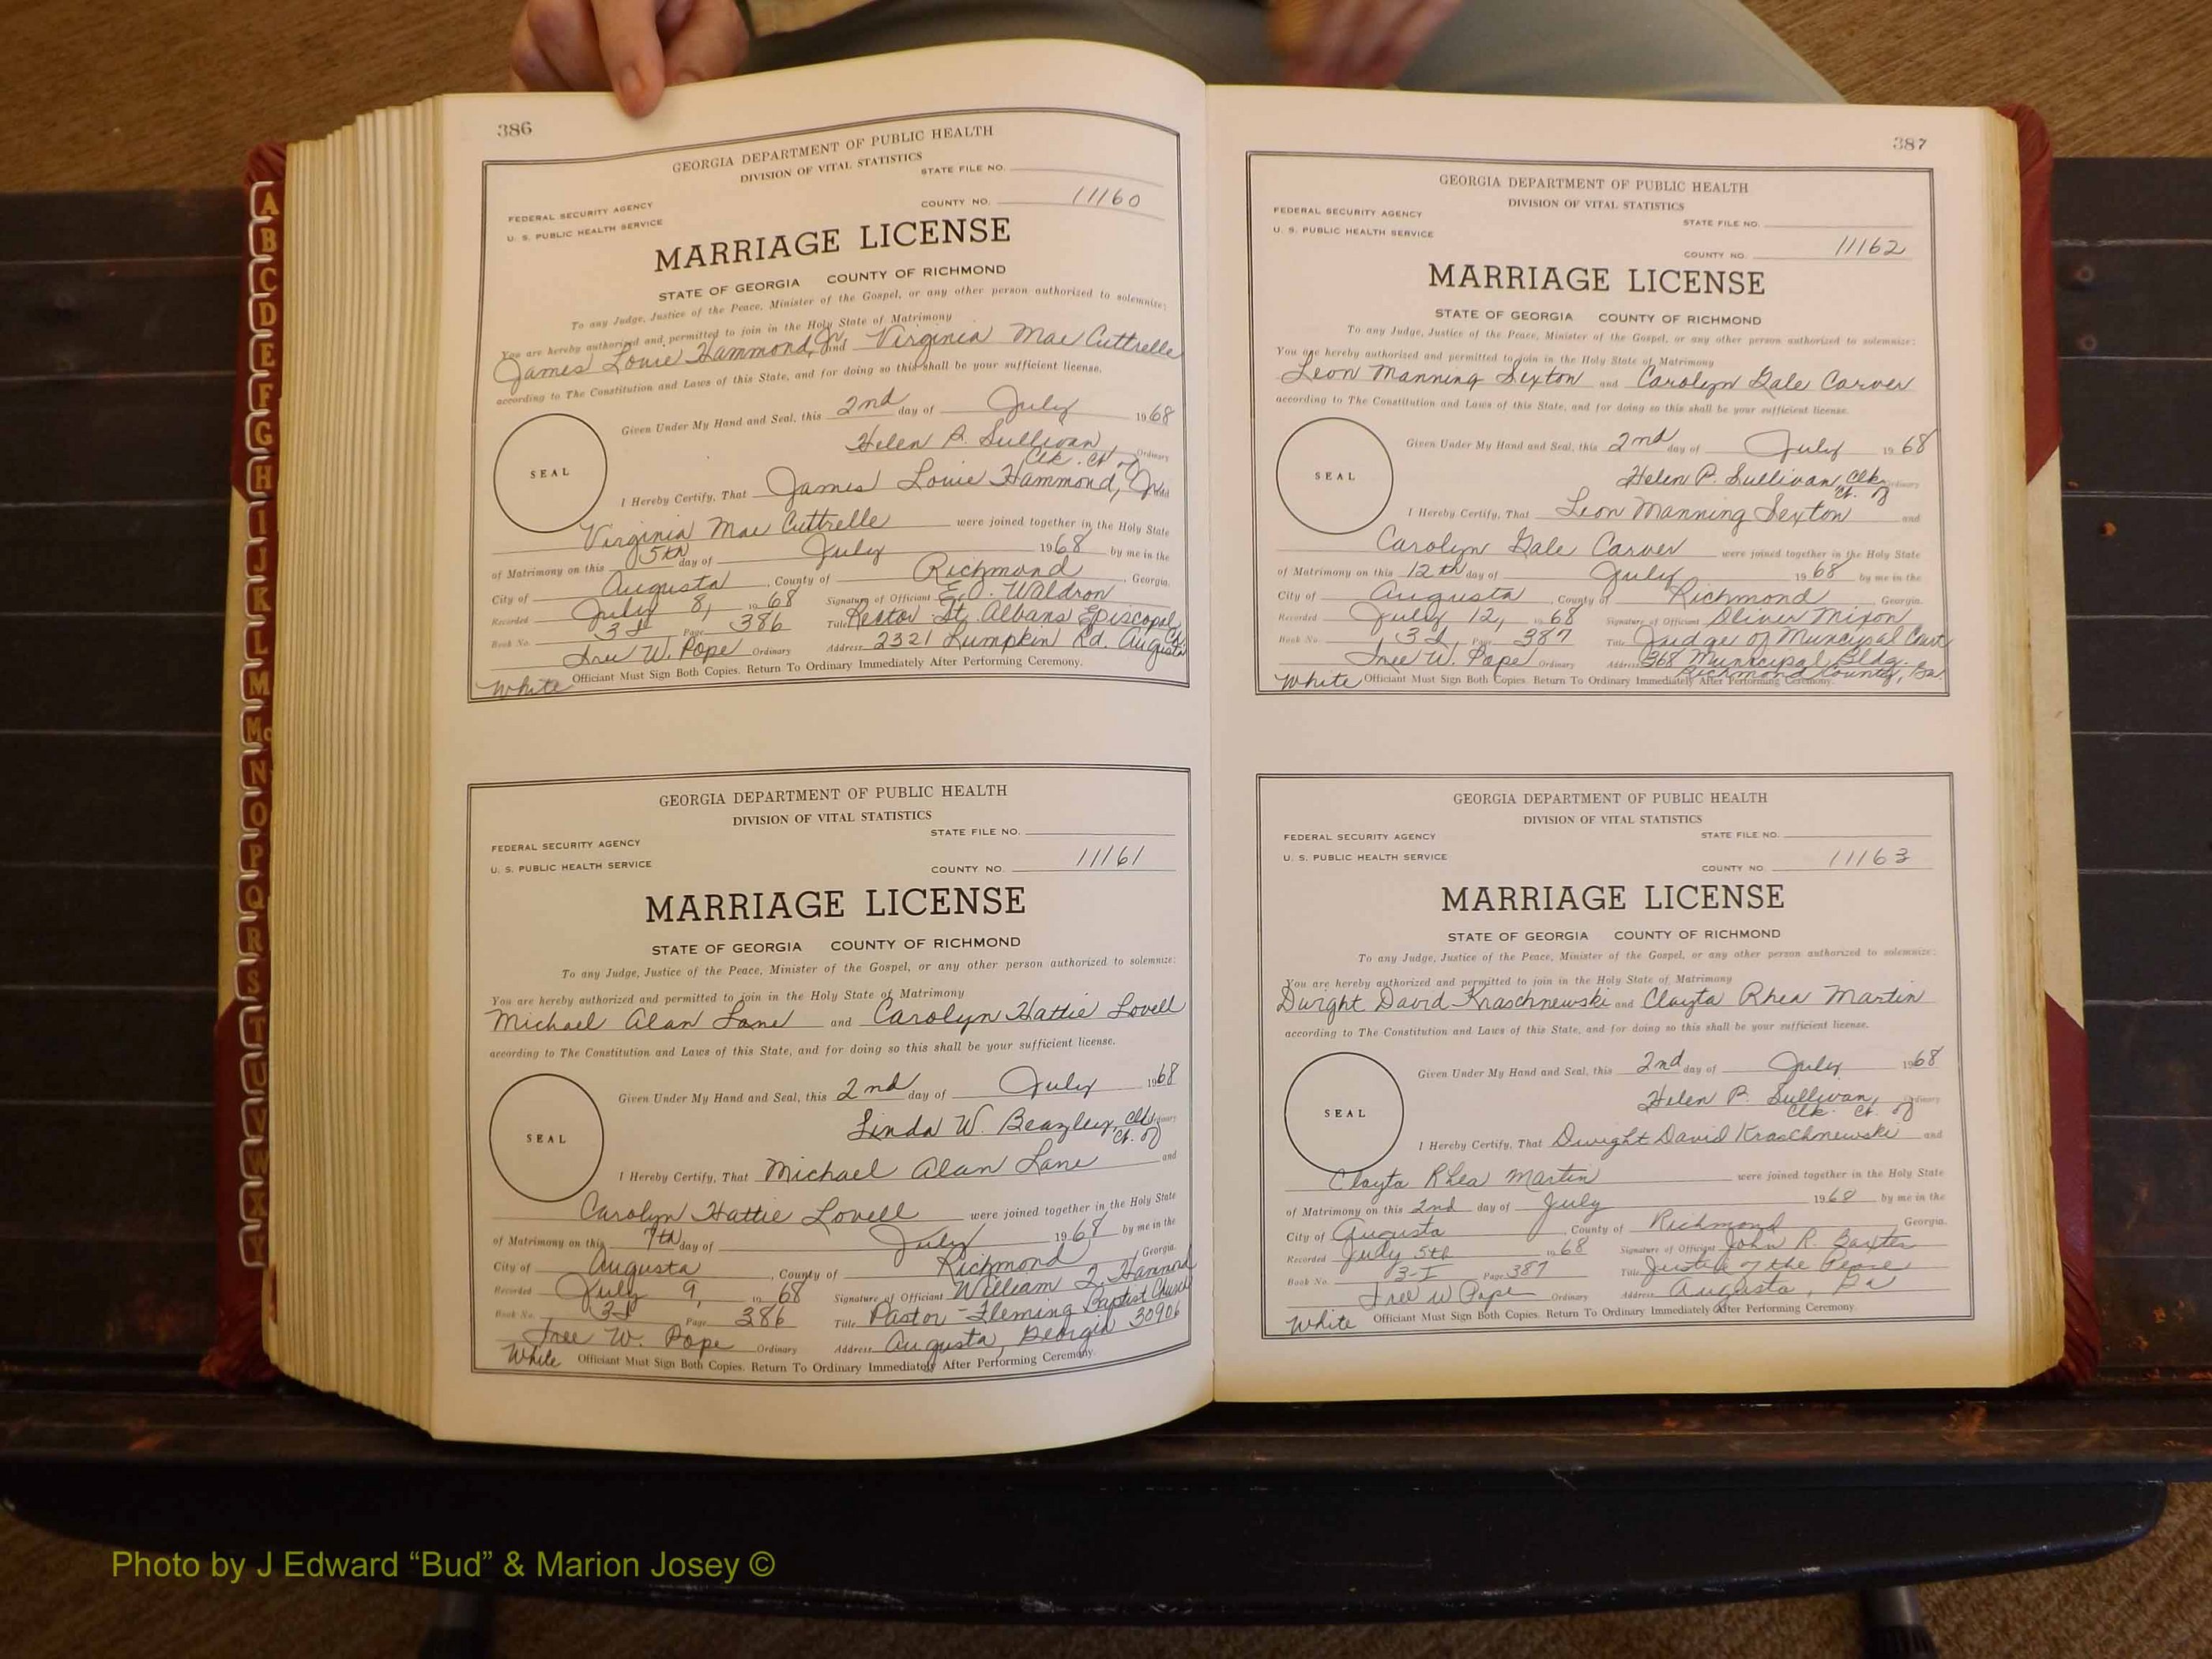 A
B
C
D
E
F
G
H
I
J
K
L
M
Mc
N
O
P
Q
R
S
T
U
V
W
X
Y
386
GEORGIA DEPARTMENT OF PUBLIC HEALTH
DIVISION OF VITAL STATISTICS
STATE FILE NO.
FEDERAL SECURITY AGENCY
COUNTY NO. 11160
U. S. PUBLIC HEALTH SERVICE
MARRIAGE LICENSE
STATE OF GEORGIA COUNTY OF RICHMOND
To any Judge, Justice of the Peace, Minister of the Gospel, or any other person authorized to solemnize:
You are hereby authorized and permitted to join in the Holy State of Matrimony
James Louie Hammond, Jr. and Virginia Mae Cuttrelle
according to The Constitution and Laws of this State, and for doing so this shall be your sufficient license.
Given Under My Hand and Seal, this 2nd day of July 1968
Helen P. Sullivan
Clk. Ct. of Ordinary
SEAL
I Hereby Certify, That James Louie Hammond, Jr. and
Virginia Mae Cuttrelle were joined together in the Holy State
of Matrimony on this 5th day of July 1968 by me in the
City of Augusta, County of Richmond, Georgia.
Recorded July 8, 1968 Signature of Officiant E. O. Waldron
Book No. 3I Page 386 Title Rector St. Albans Episcopal Ch.
Tree W. Pope Ordinary Address 2321 Lumpkin Rd. Augusta
White Officiant Must Sign Both Copies. Return To Ordinary Immediately After Performing Ceremony.
GEORGIA DEPARTMENT OF PUBLIC HEALTH
DIVISION OF VITAL STATISTICS
STATE FILE NO.
FEDERAL SECURITY AGENCY
COUNTY NO. 11161
U. S. PUBLIC HEALTH SERVICE
MARRIAGE LICENSE
STATE OF GEORGIA COUNTY OF RICHMOND
To any Judge, Justice of the Peace, Minister of the Gospel, or any other person authorized to solemnize:
You are hereby authorized and permitted to join in the Holy State of Matrimony
Michael Alan Lane and Carolyn Hattie Lovell
according to The Constitution and Laws of this State, and for doing so this shall be your sufficient license.
Given Under My Hand and Seal, this 2nd day of July 1968
Linda W. Beazley, Clk. Ordinary
Ct. of
SEAL
I Hereby Certify, That Michael Alan Lane and
Carolyn Hattie Lovell were joined together in the Holy State
of Matrimony on this 7th day of July 1968 by me in the
City of Augusta, County of Richmond, Georgia.
Recorded July 9, 1968 Signature of Officiant William
Book No. 3I Page 386 Title Pastor - Fleming Baptist Church
Tree W. Pope Ordinary Address Augusta, Georgia 30906
White Officiant Must Sign Both Copies. Return To Ordinary Immediately After Performing Ceremony.
387
GEORGIA DEPARTMENT OF PUBLIC HEALTH
DIVISION OF VITAL STATISTICS
FEDERAL SECURITY AGENCY
STATE FILE NO.
U. S. PUBLIC HEALTH SERVICE
COUNTY NO. 11162
MARRIAGE LICENSE
STATE OF GEORGIA COUNTY OF RICHMOND
To any Judge, Justice of the Peace, Minister of the Gospel, or any other person authorized to solemnize:
You are hereby authorized and permitted to join in the Holy State of Matrimony
Leon Manning Sexton and Carolyn Gale Carver
according to The Constitution and Laws of this State, and for doing so this shall be your sufficient license.
Given Under My Hand and Seal, this 2nd day of July 1968
Helen P. Sullivan, Clk. Ordinary
Ct. of
SEAL
I Hereby Certify, That Leon Manning Sexton and
Carolyn Gale Carver were joined together in the Holy State
of Matrimony on this 12th day of July 1968 by me in the
City of Augusta, County of Richmond Georgia.
Recorded July 12, 1968 Signature of Officiant Oliver Mixon
Book No. 3I, Page 387 Title Judge of Muncipal Court
Tree W. Pope Ordinary Address 368 Municipal Bldg.
Richmond County, Ga.
White Officiant Must Sign Both Copies. Return To Ordinary Immediately After Performing Ceremony.
GEORGIA DEPARTMENT OF PUBLIC HEALTH
DIVISION OF VITAL STATISTICS
FEDERAL SECURITY AGENCY
STATE FILE NO.
U. S. PUBLIC HEALTH SERVICE
COUNTY NO. 11163
MARRIAGE LICENSE
STATE OF GEORGIA COUNTY OF RICHMOND
To any Judge, Justice of the Peace, Minister of the Gospel, or any other person authorized to solemnize:
You are hereby authorized and permitted to join in the Holy State of Matrimony
Dwight David Kraschnewski and Clayta Rhea Martin
according to The Constitution and Laws of this State, and for doing so this shall be your sufficient license.
Given Under My Hand and Seal, this 2nd day of July 1968
Helen P. Sullivan, Ordinary
Clk. Ct. of
SEAL
I Hereby Certify, That Dwight David Kraschnewski and
Clayta Rhea Martin were joined together in the Holy State
of Matrimony on this 2nd day of July 1968 by me in the
City of Augusta, County of Richmond, Georgia.
Recorded July 5th 1968 Signature of Officiant John R. Baxter
Book No. 3-I Page 387 Title Justice of the Peace
Tree W Pope Ordinary Address Augusta, Ga
White Officiant Must Sign Both Copies. Return To Ordinary Immediately After Performing Ceremony.
Photo by J Edward “Bud” & Marion Josey ©